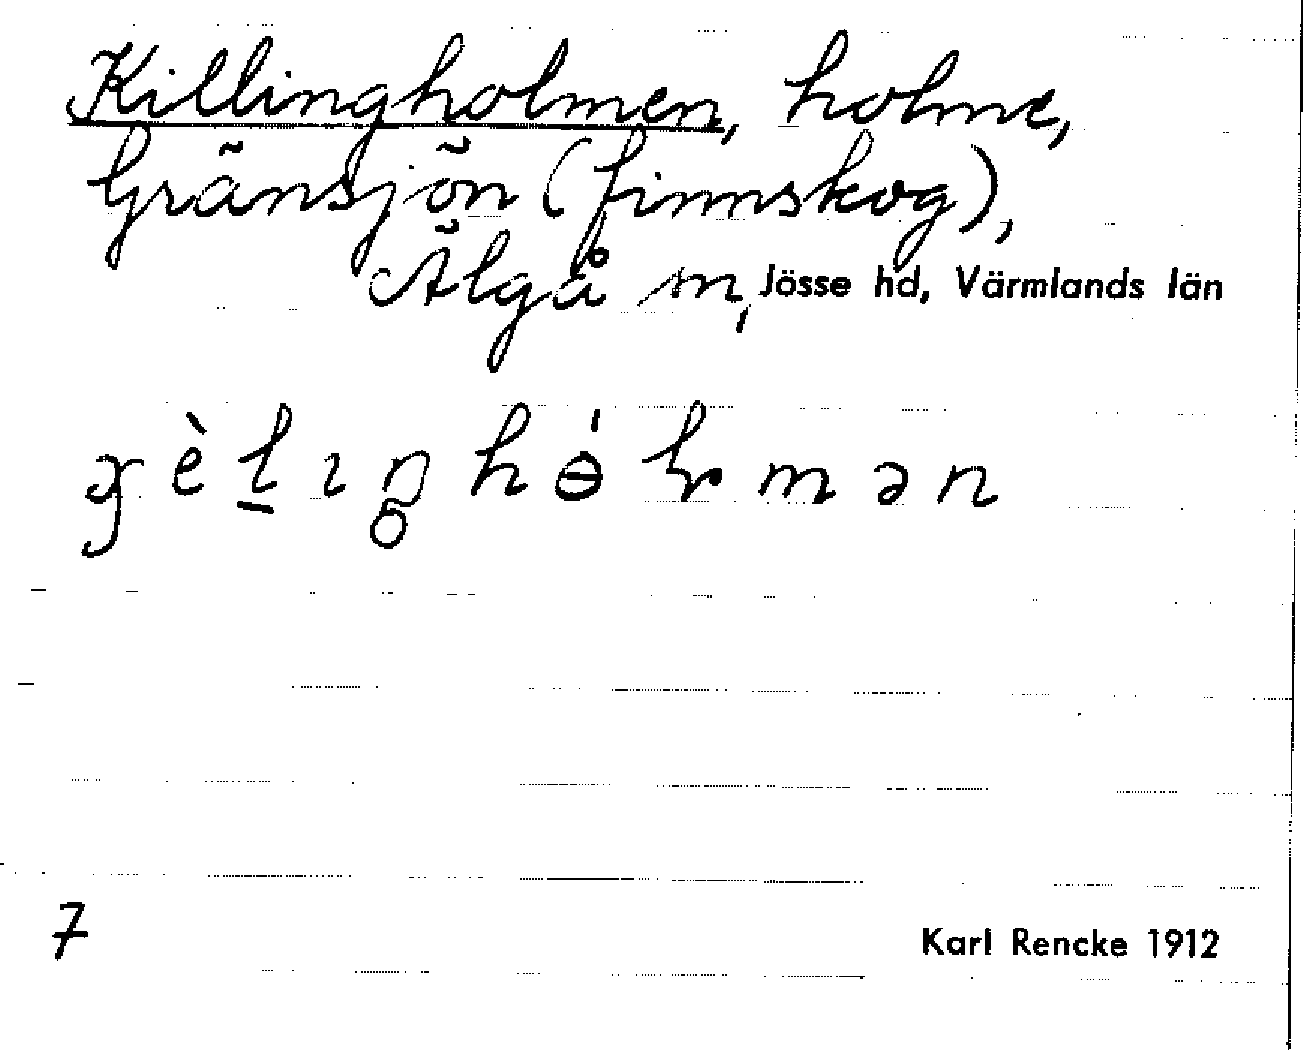 Killingholmen, holme,
Gränsjön (finnskog),
Älgå sn, Jösse hd, Värmlands län
7
Karl Rencke 1912